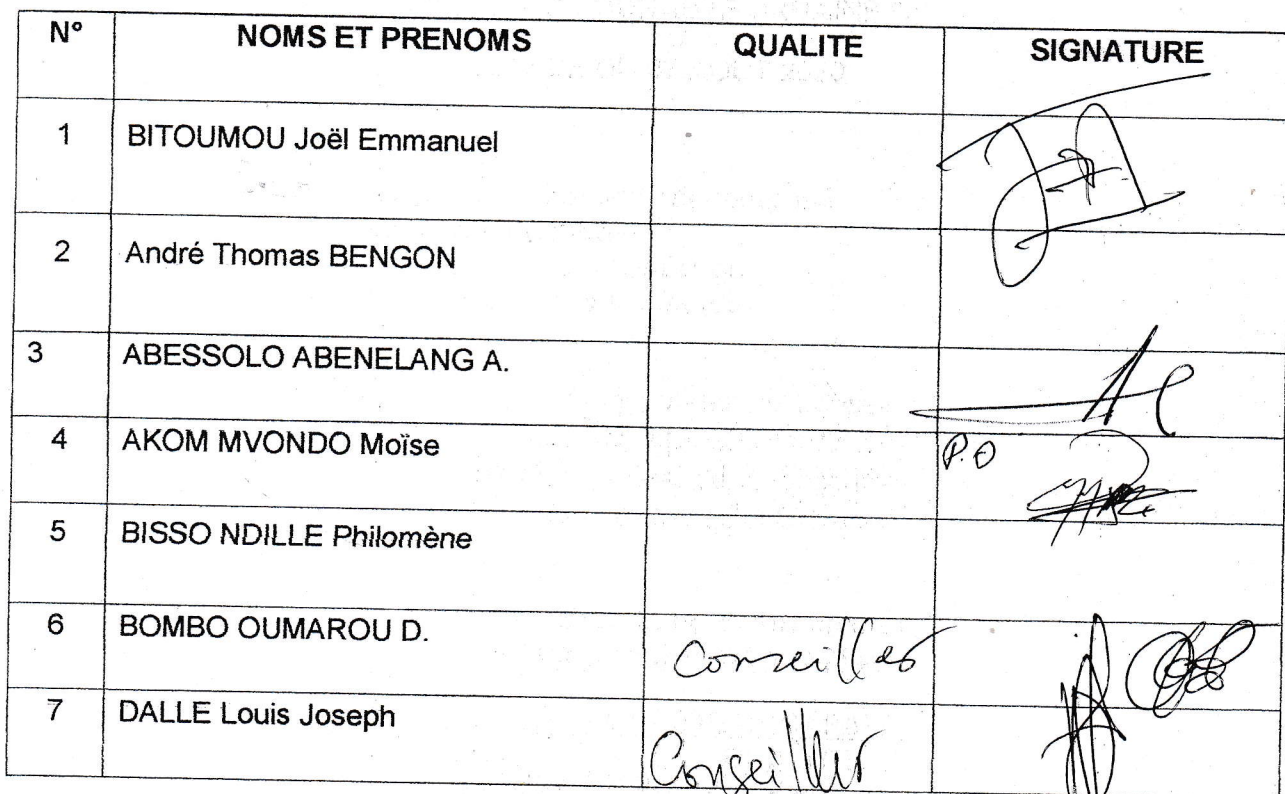 N° NOMS ET PRENOMS QUALITE SIGNATURE
1 BITOUMOU Joël Emmanuel
2 André Thomas BENGON
3 ABESSOLO ABENELANG A.
4 AKOM MVONDO Moïse P.O
5 BISSO NDILLE Philomène
6 BOMBO OUMAROU D. Conseiller
7 DALLE Louis Joseph Conseiller